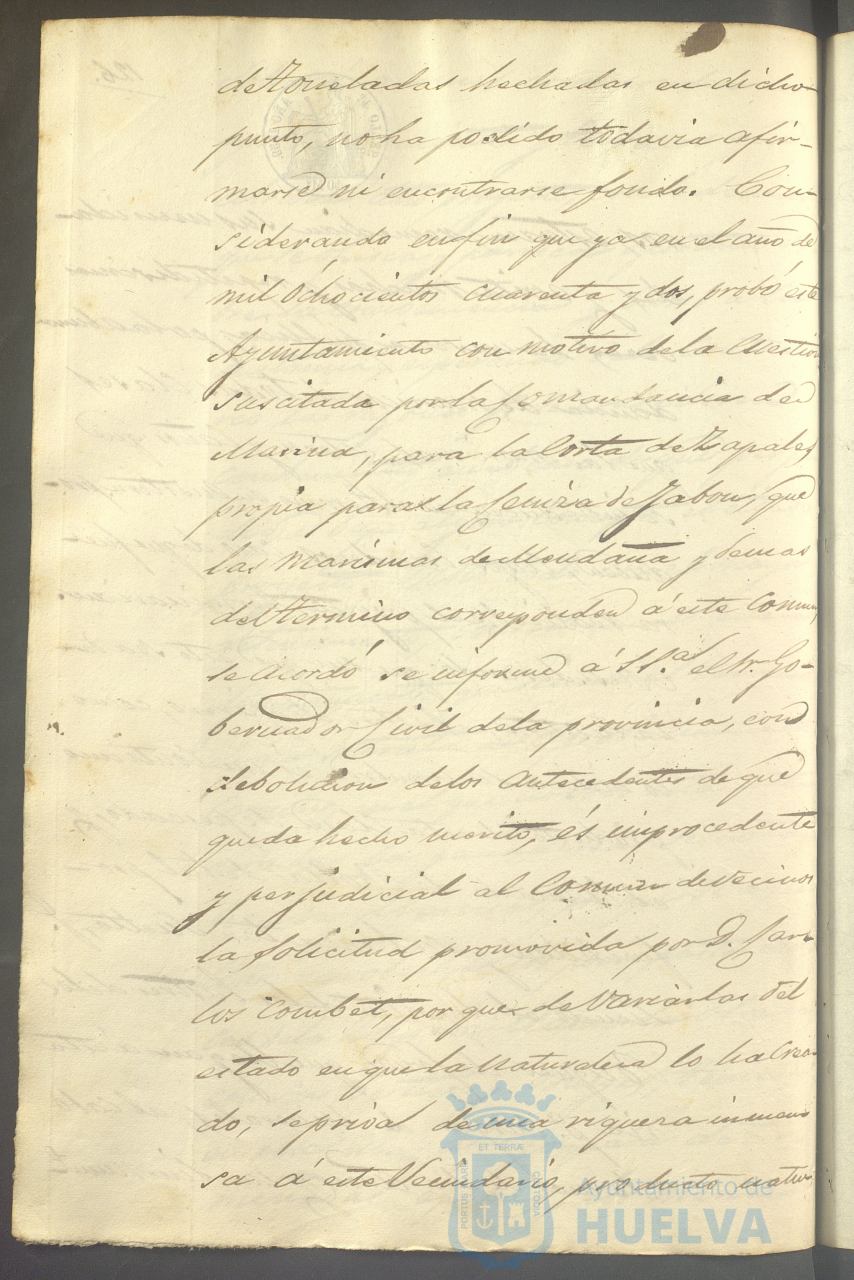 de Toneladas hechadas en dicho
punto, no ha podido todavia afir-
marse ni encontrarse fondo. Con-
siderando en fin que ya en el año de
mil ochocientos cuarenta y dos, probó este
Ayuntamiento con motivo de la cuestion
suscitada por la Comandancia de
Marina, para la Corta de Zapales,
propia para la Ceniza de Jabon, que
las marismas de Mendaña y demas
del termino corresponden á este Comun,
se acordó se informe á S.S.ª el Sr. Go-
bernador Civil de la provincia, con
debolucion de los antecedentes de que
queda hecho merito, és improcedente
y perjudicial al Comun de vecinos
la solicitud promovida por D. Car-
los Combet, por que de variarlas del
estado en que la naturaleza lo ha crea-
do, se priva de una riqueza inmen
sa á este Vecindario, producto natu
126.
PORTUS MARIS
ET TERRÆ
CUSTODIA
Ayuntamiento de
HUELVA